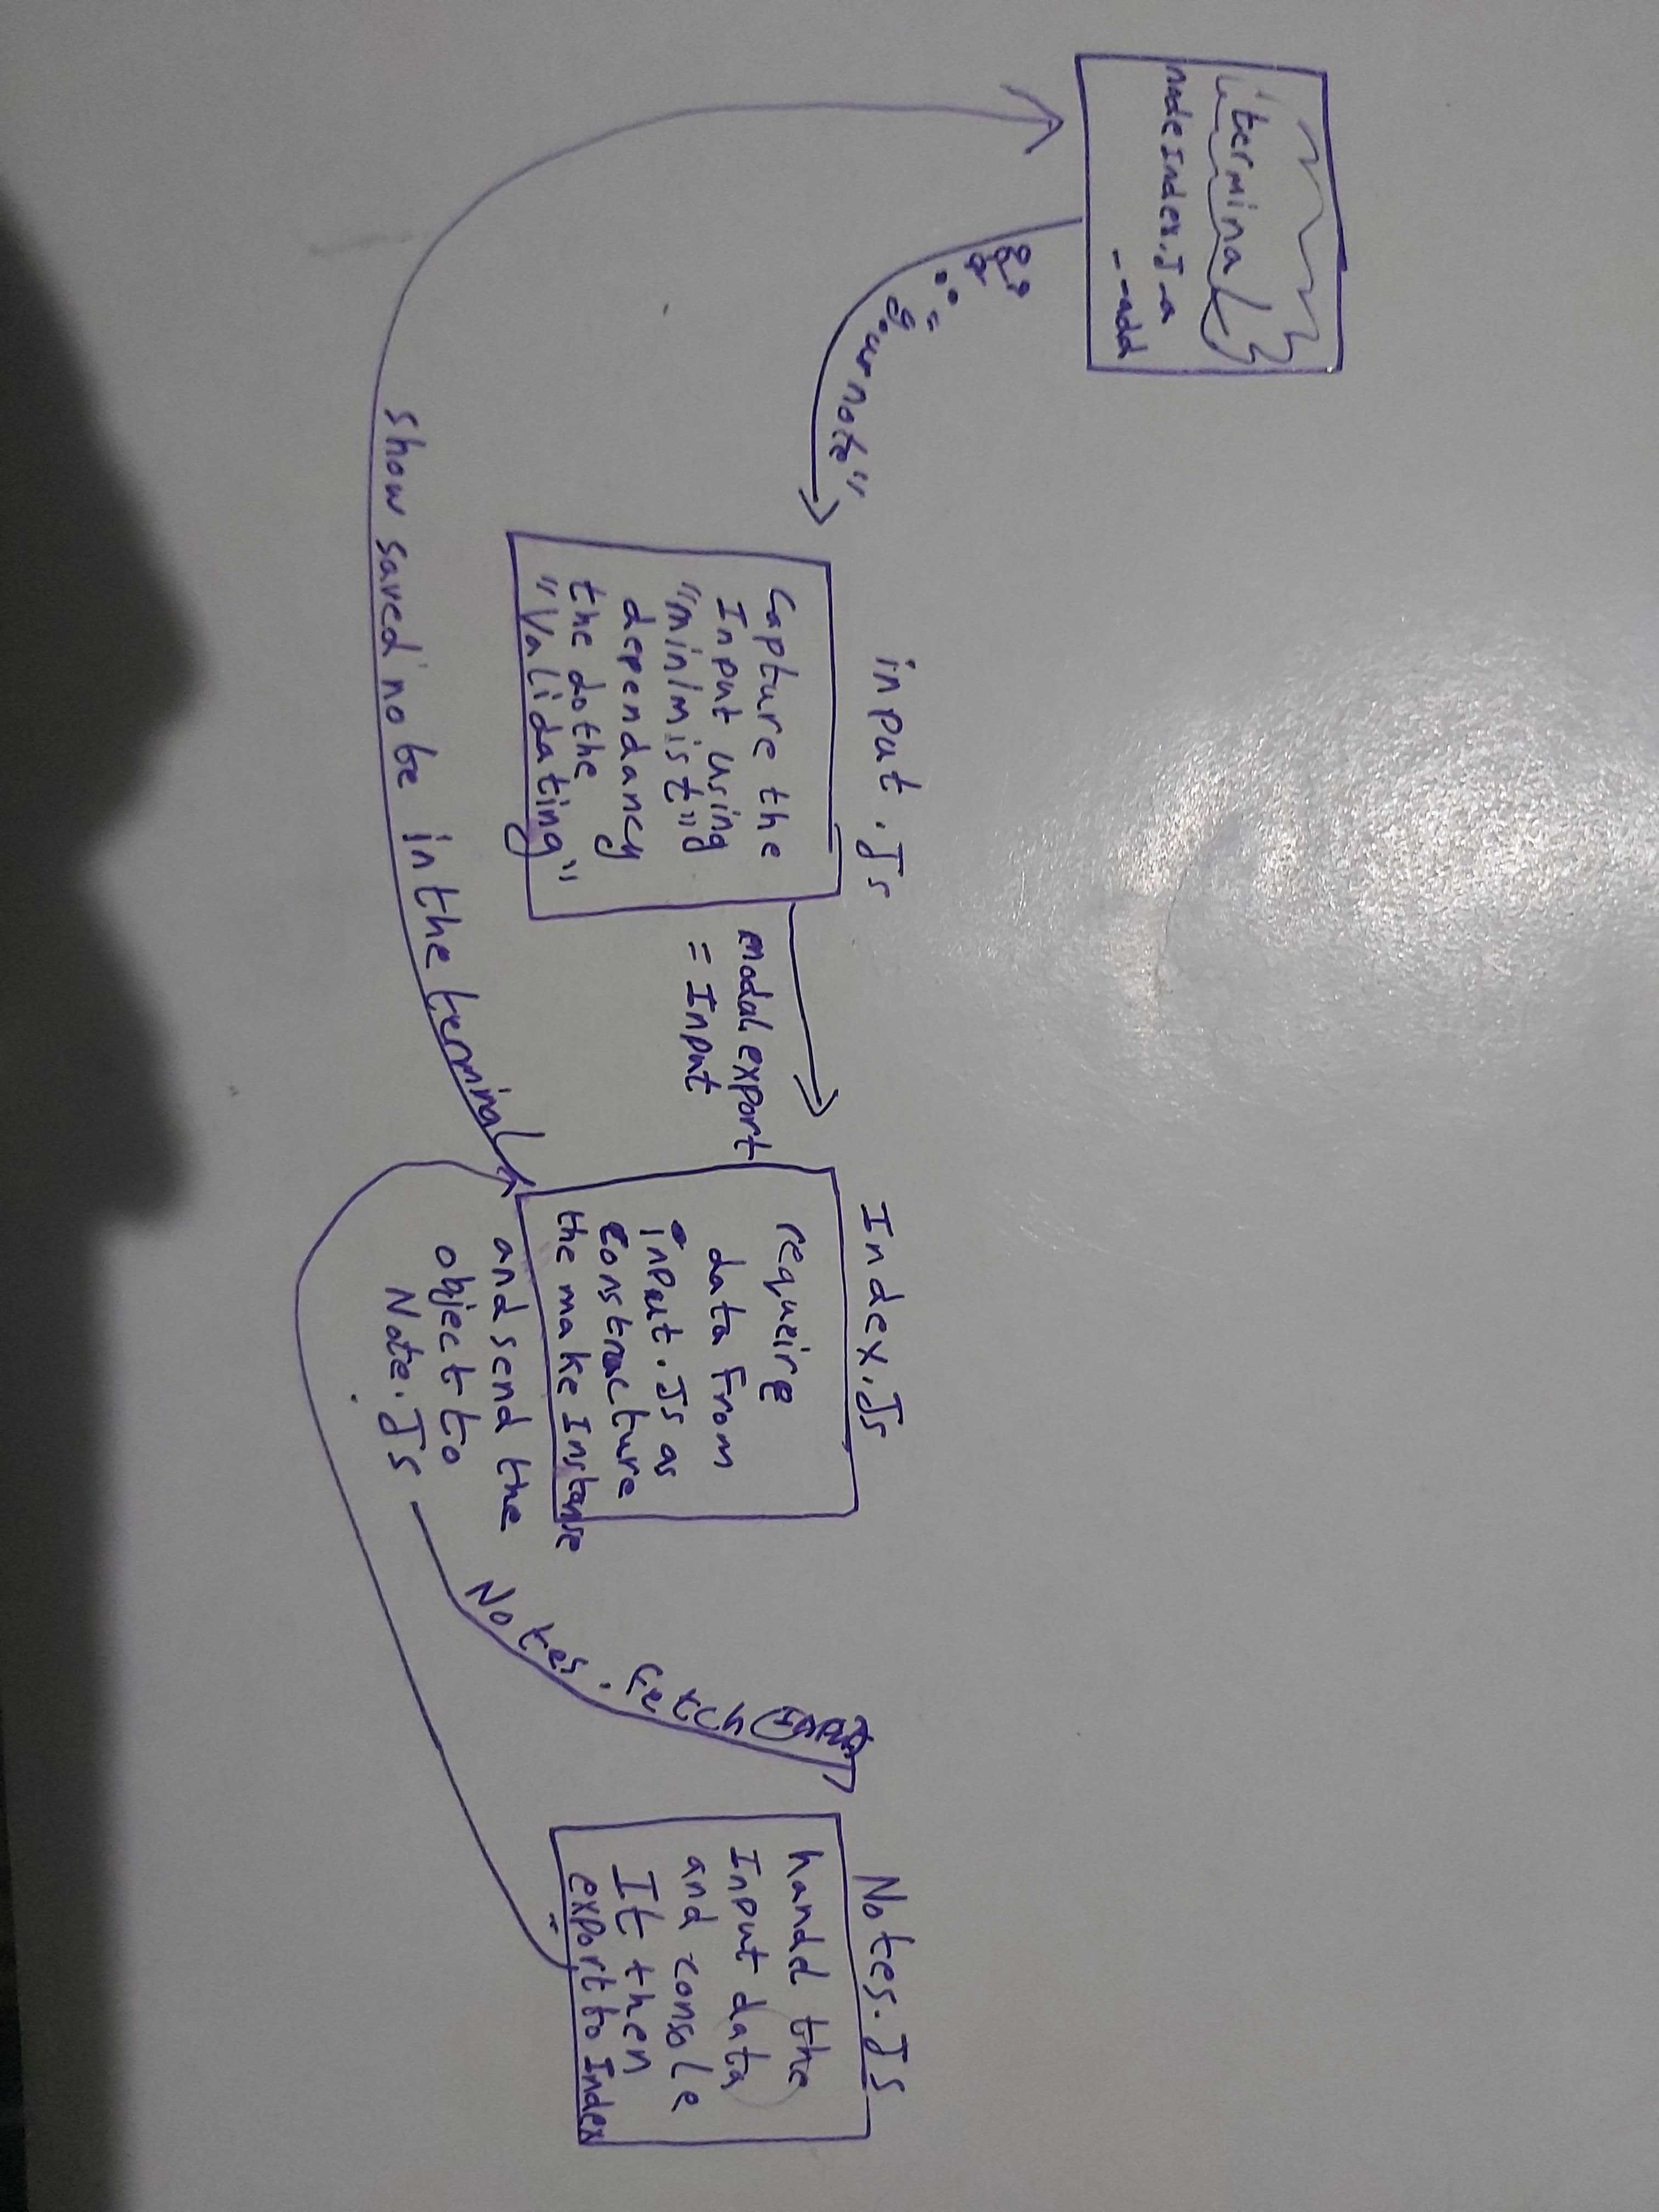 terminal
node Index.J -a
--add
add : "your note"
input.Js
Capture the
Input using
"minimist"
dependancy
the do the
"Validating"
modal export
= Input
Index.Js
requeire
data From
input.Js as
constracture
the make Instanse
and send the
object to
Note.JS
Notes.fetch(Input)
Notes.JS
handel the
Input data
and console
It then
export to Index
show saved note in the terminal